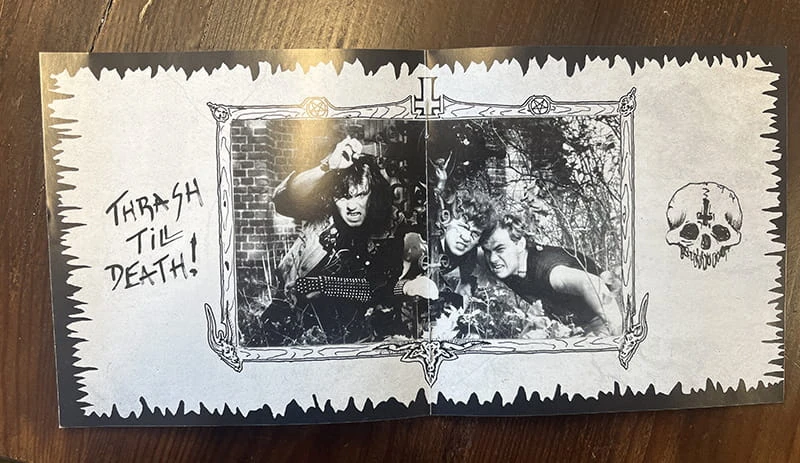 THRASH
TILL
DEATH!